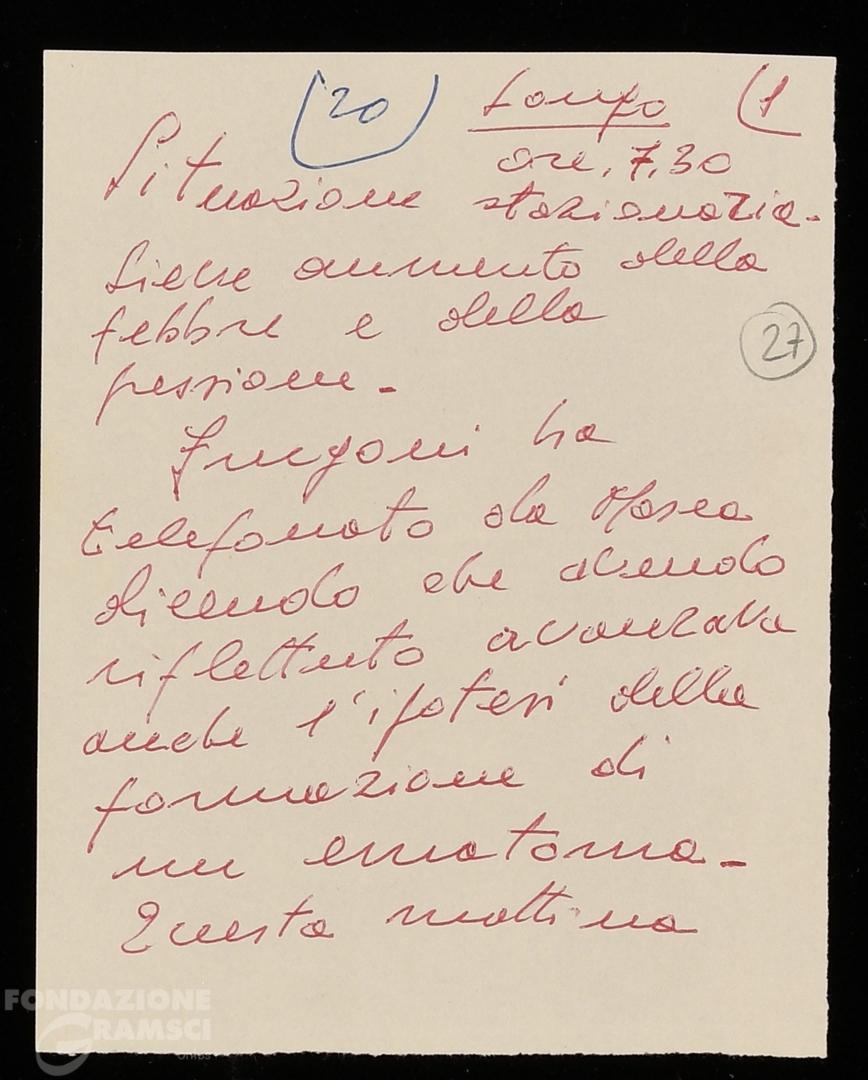 (20) Longo (1
ore, 7,30
Situazione stazionaria.
Lieve aumento della
febbre e della
27
pressione.
Frugoni ha
telefonato da Mosca
dicendo che avendo
riflettuto avanzava
anche l'ipotesi della
formazione di
un ematoma.
Questa mattina
FONDAZIONE
GRAMSCI
onlus